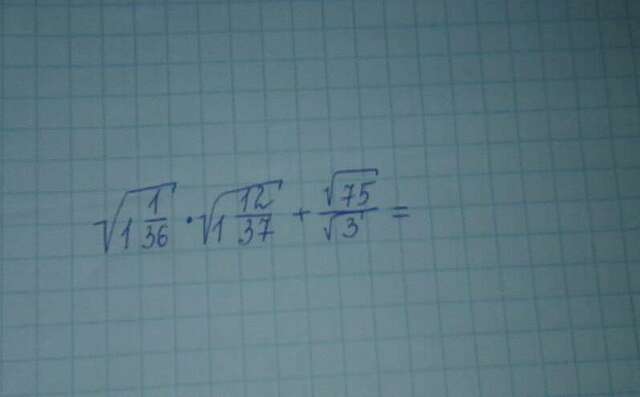 √(1 1/36) · √(1 12/37) + √75/√3 =